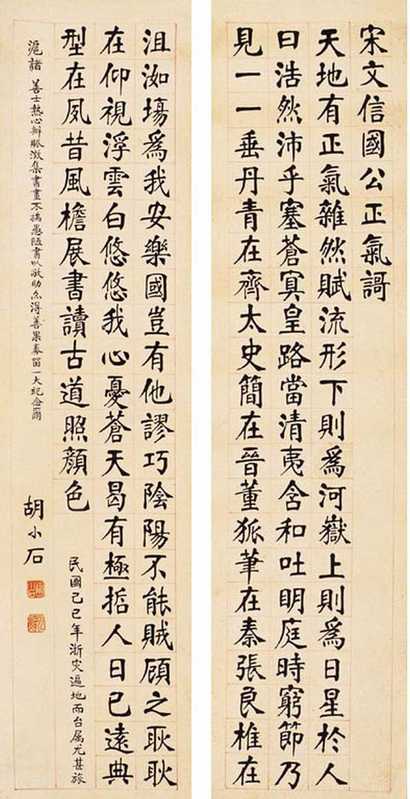 宋文信國公正氣謌
天地有正氣雜然賦流形下則為河嶽上則為日星於人
曰浩然沛乎塞蒼冥皇路當清夷含和吐明庭時窮節乃
見一一垂丹青在齊太史簡在晉董狐筆在秦張良椎在
沮洳場為我安樂國豈有他謬巧陰陽不能賊顧之耿耿
在仰視浮雲白悠悠我心憂蒼天曷有極哲人日已遠典
型在夙昔風檐展書讀古道照顏色
民國己巳年浙灾遍地而台属尤甚旅
滬諸善士熱心辦賑徵集書畫不揣愚陋書以敬助亦得善果奉留一大紀念爾
胡小石